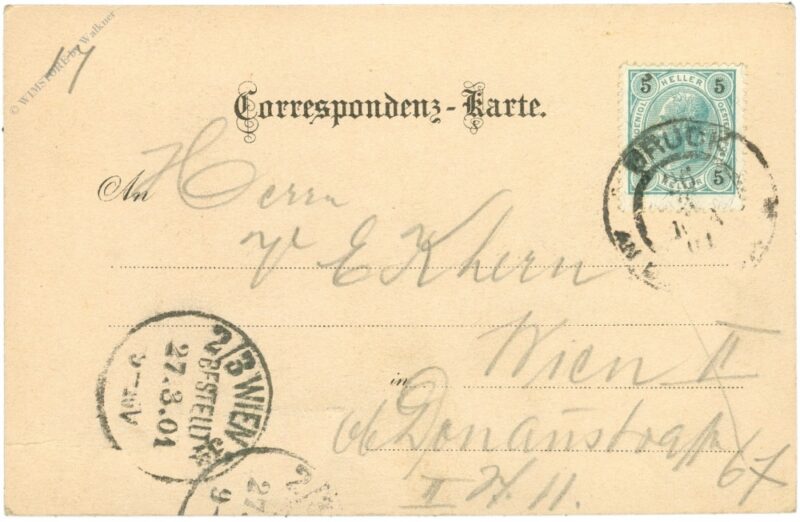 © WIMSTORE by Walkner
14
Correspondenz-Karte.
5 HELLER 5
5
BRUCK
AN
An Herrn
V E Khern
in Wien II
ob Donaustr 67
II St. 11.
2/3 WIEN
BESTELLT
27.3.01
9-
27
9-